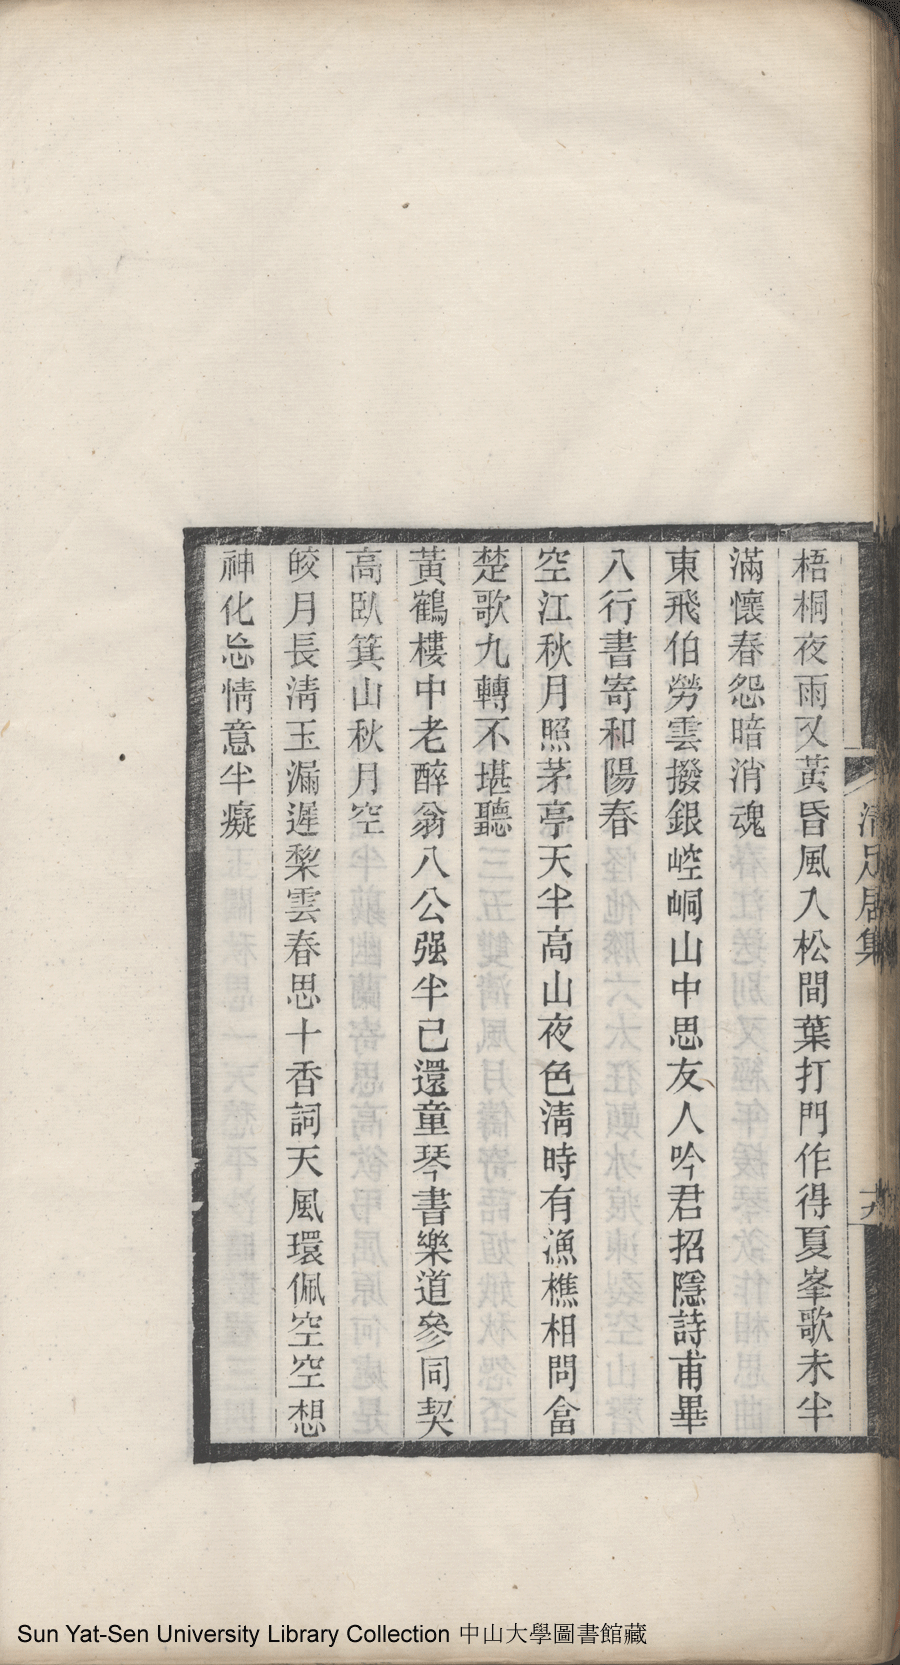 梧桐夜雨又黃昏風入松間葉打門作得夏峯歌未半
滿懷春怨暗消魂
東飛伯勞雲撥銀崆峒山中思友人吟君招隱詩甫畢
八行書寄和陽春
空江秋月照茅亭天半高山夜色淸時有漁樵相問畣
楚歌九轉不堪聽
黃鶴樓中老醉翁八公强半已還童琴書樂道參同契
高臥箕山秋月空
皎月長淸玉漏遲棃雲春思十香詞天風環佩空空想
神化忘情意半癡
淸足居集
十八
Sun Yat-Sen University Library Collection 中山大學圖書館藏